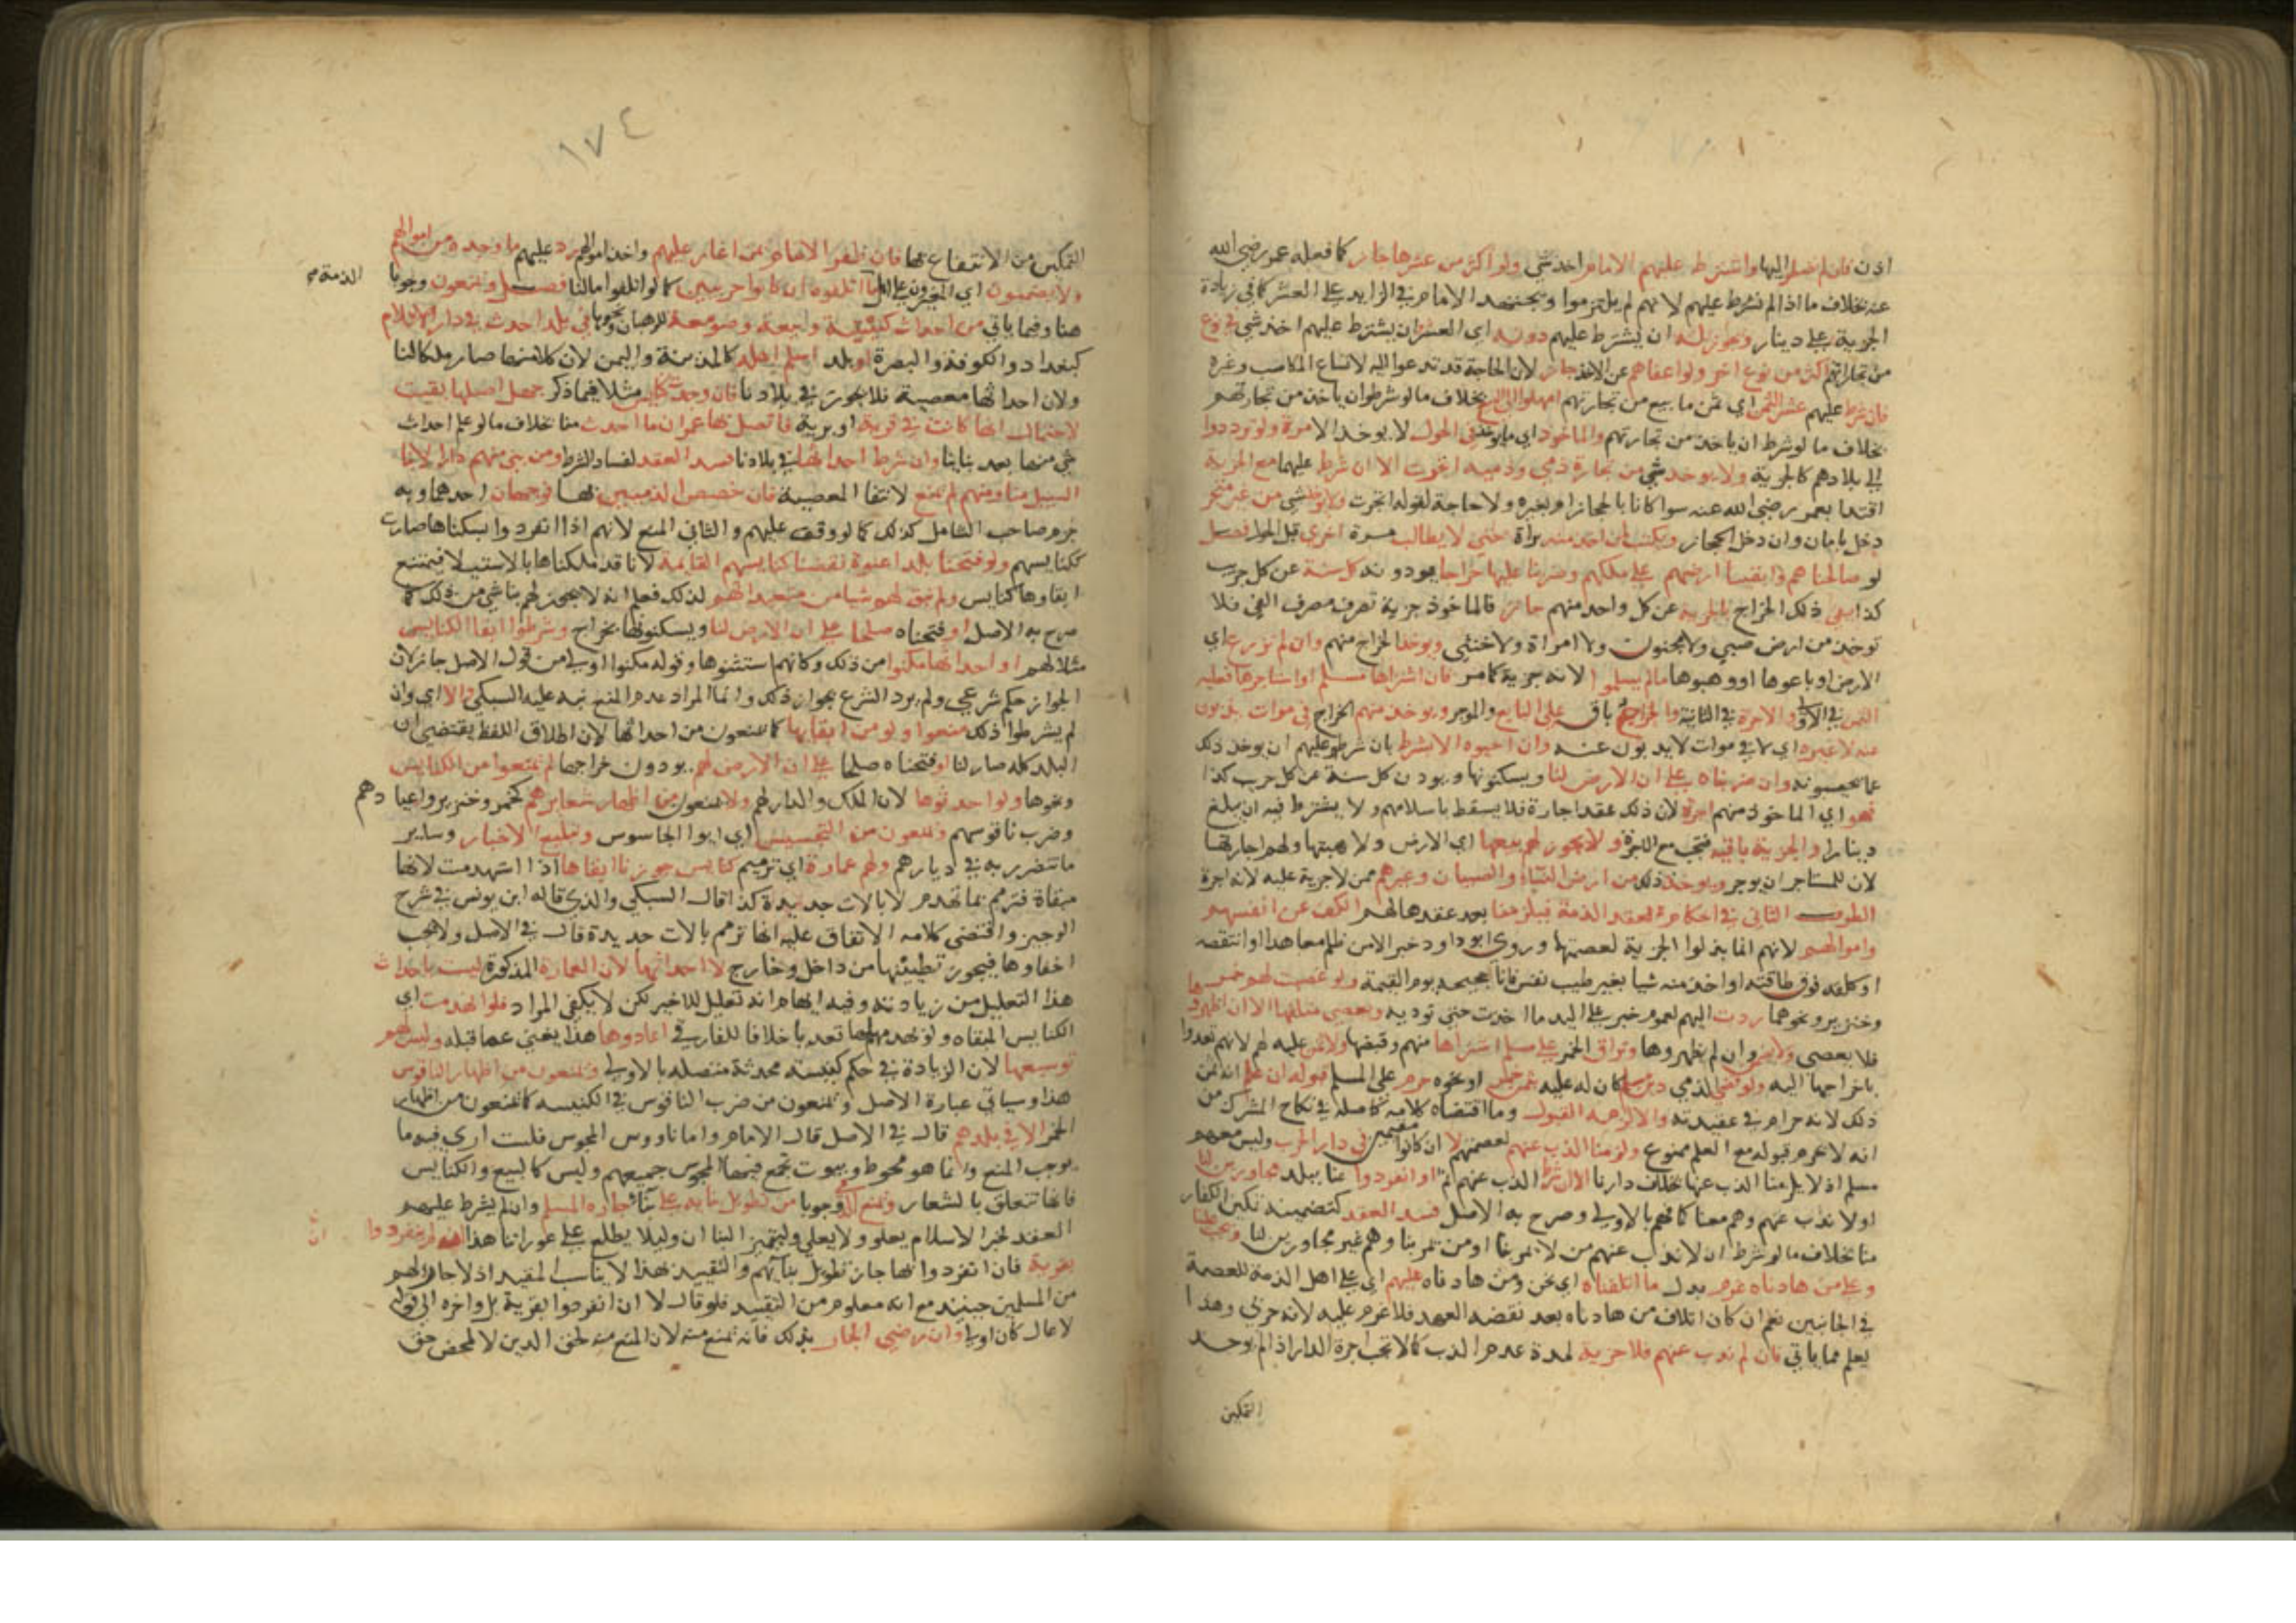 اذن فان لم يضطر اليها واشترط عليهم الامام اخذ شي ولو اكثر من عشرها جاز كما فعله عمر رضي الله
عنه بخلاف ما اذا لم يشرط عليهم لانهم لم يلتزموا ويجتهد الامام في الزايد على العشر كما في زيادة
الجزية على دينار ويجوز له ان يشترط عليهم دونه اي العشر وان يشترط عليهم اخذ شي في نوع
من تجارتهم اكثر من نوع اخر ولو اعفاهم عن الاخذ جاز لان الحاجة قد تدعوا اليه لاتساع المكاسب وغيره
فان شرط عليهم عشر الثمن اي ثمن ما بيع من تجارتهم امهلوا الى البيع بخلاف ما لو شرطوا ان ياخذ من تجارتهم
بخلاف ما لو شرط ان ياخذ من تجارتهم والماخوذ اي ما يوخذ في الحول لا يوخذ الا مرة ولو ترددوا
الى بلادهم كالجزية ولا يوخذ شي من تجارة ذمي وذمية اتجرت الا ان شرط عليهما مع الجزية
اقتدا بعمر رضي الله عنه سوا كانا بالحجاز او بغيره ولا حاجة لقوله اتجرت ولا يوخذ شي من غير متجر
دخل بامان وان دخل الحجاز ويكتب لمن اخذ منه براة حتى لا يطالب مرة اخرى قبل الحول فصل
لو صالحناهم وابقينا ارضهم على ملكهم وضربنا عليها خراجا يودونه كل سنة عن كل جريب
كذا يفي ذلك الخراج بالجزية عن كل واحد منهم جاز فالماخوذ جزية تصرف مصرف الفي فلا
توخذ من ارض صبي ولا مجنون ولا امراة ولا خنثى ويوخذ الخراج منهم وان لم تزرع اي
الارض او باعوها او وهبوها ما لم يسلموا لانه جزية كما مر فان اشتراها مسلم او استاجرها فعليه
الثمن في الاولى والاجرة في الثانية والخراج باق على البايع والموجر ويوخذ منهم الخراج في موات يذبون
عنه لا غيره اي لا في موات لا يذبون عنه وان احيوه الا بشرط بان شرط عليهم ان يوخذ ذلك
عما يحيونه وان ضربناه على ان الارض لنا ويسكنونها ويودون كل سنة عن كل جريب كذا
فهو اي الماخوذ منهم اجرة لان ذلك عقد اجارة فلا يسقط باسلامهم ولا يشترط فيه ان يبلغ
دينارا والجزية باقية فتجب مع الاجرة ولا يجوز لهم بيعها اي الارض ولا هبتها ولهم اجارتها
لان للمستاجر ان يوجر ويوخذ ذلك من ارض النساء والصبيان وغيرهم ممن لا جزية عليه لانه اجرة
الطرف الثاني في احكام عقد الذمة فيلزمنا بعد عقدها لهم الكف عن انفسهم
واموالهم لانهم انما بذلوا الجزية لعصمتها وروى ابو داود خبر الا من ظلم معاهدا او انتقصه
او كلفه فوق طاقته او اخذ منه شيا بغير طيب نفس فانا حجيجه يوم القيمة ولو غصبت لهم خمر
وخنزير ونحوهما ردت اليهم لعموم خبر على اليد ما اخذت حتى توديه ويعصي متلفها الا ان اظهرو
فلا يعصي ولا يضمن وان لم يظهروها وتراق الخمر على مسلم اشتراها منهم وقبضها ولا ثمن عليه لهم لانهم تعدوا
باخراجها اليه ولو قضى الذمي دين مسلم كان له عليه بثمن خمر او نحوه حرم على المسلم قبوله ان علم انه ثمن
ذلك لانه حرام في عقيدته والا لزمه القبول وما اقتضاه كلامه كاصله في نكاح المشرك من
انه لا يحرم قبوله مع العلم ممنوع ولزمنا الذب عنهم لعصمتهم لا ان كانوا مقيمين في دار الحرب وليس معهم
مسلم اذ لا يلزمنا الذب عنها بخلاف دارنا الا ان شرط الذب عنهم ثم او انفردوا عنا ببلد مجاورين لنا
اولا نذب عنهم وهم معنا كما فهم بالاولى وصرح به الاصل فسد العقد كتضمينه تمكين الكفار
منا بخلاف ما لو شرط ان لا نذب عنهم من لا يمر بنا او من يمر بنا وهم غير مجاورين لنا
وعلى من هادناه غرم بدل ما اتلفناه اي نحن ومن هادناه عليهم اي على اهل الذمة للعصمة
في الجانبين نعم ان كان اتلاف من هادناه بعد نقضه العهد فلا غرم عليه لانه حربي وهذا
يعلم مما ياتي فان لم نذب عنهم فلا جزية لمدة عدم الذب كما لا تجب اجرة الدار اذا لم يوجد
التمكين
١٧٤
التمكين من الانتفاع بها فان ظفر الامام بمن اغار عليهم واخذ اموالهم رد عليهم ما وجده من اموالهم
الذمة صح
ولا يضمنون اي المغيرون على اهل ما اتلفوه ان كانوا حربيين كما لو اتلفوا مالنا فصل ويمنعون وجوبا
هنا وفيما ياتي من احداث كنيسة وبيعة وصومعة للرهبان ونحوها في بلد احدث في دار الاسلام
كبغداد والكوفة والبصرة او بلد اسلم اهله كالمدينة واليمن لان كلا منهما صار ملكا لنا
ولان احداثها معصية فلا يجوز في بلادنا فان وجدت كنايس مثلا فيما ذكر جهل اصلها بقيت
لاحتمال انها كانت في قرية او برية فاتصل بها عمران ما احدث منا بخلاف ما لو علم احداث
شي منها بعد بناينا وان شرط احداثها في بلادنا فسد العقد لفساد الشرط ومن بنى منهم دارا لابنا
السبيل منا ومنهم لم يمنع لانتفا المعصية فان خصص الذميين بها فوجهان احدهما وبه
جزم صاحب الشامل كذلك كما لو وقف عليهم والثاني المنع لانهم اذا انفردوا بسكناها صارت
ككنايسهم ولو فتحنا بلدا عنوة نقضنا كنايسهم القايمة لانا قد ملكناها بالاستيلا فيمتنع
ابقاوها كنايس ولم نبق لهم شيا من متعبداتهم لذلك فعلم انه لا يجوز لهم بنا شي من ذلك كما
صرح به الاصل او فتحناه صلحا على ان الارض لنا ويسكنونها بخراج وشرطوا ابقا الكنايس
مثلا لهم او احداثها مكنوا من ذلك وكانهم استثنوها وقوله مكنوا اولى من قول الاصل جاز لان
الجواز حكم شرعي ولم يرد الشرع بجواز ذلك وانما المراد عدم المنع نبه عليه السبكي والا اي وان
لم يشرطوا ذلك منعوا ولو من ابقايها كما يمنعون من احداثها لان اطلاق اللفظ يقتضي ان
البلد كله صار لنا او فتحناه صلحا على ان الارض لهم يودون خراجها لم يمنعوا من الكنايس
ونحوها ولو احدثوها لان الملك والدار لهم ولا يمنعون من اظهار شعايرهم كخمر وخنزير واعيادهم
وضرب ناقوسهم ويمنعون من التجسيس اي ايوا الجاسوس وتبليغ الاخبار وساير
ما نتضرر به في ديارهم ولهم عمارة اي ترميم كنايس جوزنا ابقاها اذا استهدمت لانها
مبقاة فترمم بما تهدم لا بالات جديدة كذا قال السبكي والذي قاله ابن يونس في شرح
الوجيز واقتضى كلامه الاتفاق عليه انها ترمم بالات جديدة قال في الاصل ولا يجب
اخفاوها فيجوز تطيينها من داخل وخارج لا احداثها لان العمارة المذكورة ليست باحداث
هذا التعليل من زيادته وفيه ايهام انه تعليل للاخير لكن لا يكفي المراد فلو انهدمت اي
الكنايس المبقاه ولو بهدمهم لها تعديا خلافا للفارقي اعادوها هذا يغني عما قبله وليس لهم
توسيعها لان الزيادة في حكم كنيسة محدثة متصلة بالاولى ويمنعون من اظهار الناقوس
هذا وسياتي عبارة الاصل ويمنعون من ضرب الناقوس في الكنيسه كما يمنعون من اظهار
الخمر الا في بلدهم قال في الاصل قال الامام واما ناووس المجوس فلست ارى فيه ما
يوجب المنع وانما هو محوط وبيوت تجمع فيها المجوس جميعهم وليس كالبيع والكنايس
فانها تتعلق بالشعار ويمنع الذمي وجوبا من تطويل بنايه على بنا جاره المسلم وان لم يشرط عليهم
العقد لخبر الاسلام يعلو ولا يعلى وليتميز البنا ان وليلا يطلع على عوراتنا هذا ان لم ينفردوا
بقرية فان انفردوا بها جاز تطويل بنايهم والتقييد بهذا لا يناسب المقيد اذ لا جار لهم
من المسلمين حينيذ مع انه معلوم من التقييد فلو قال لا ان انفردوا بقرية بل واخره الى قوله
لا عال كان اولى وان رضي الجار بذلك فانه يمنع منه لان المنع منه لحق الدين لا لمحض حق